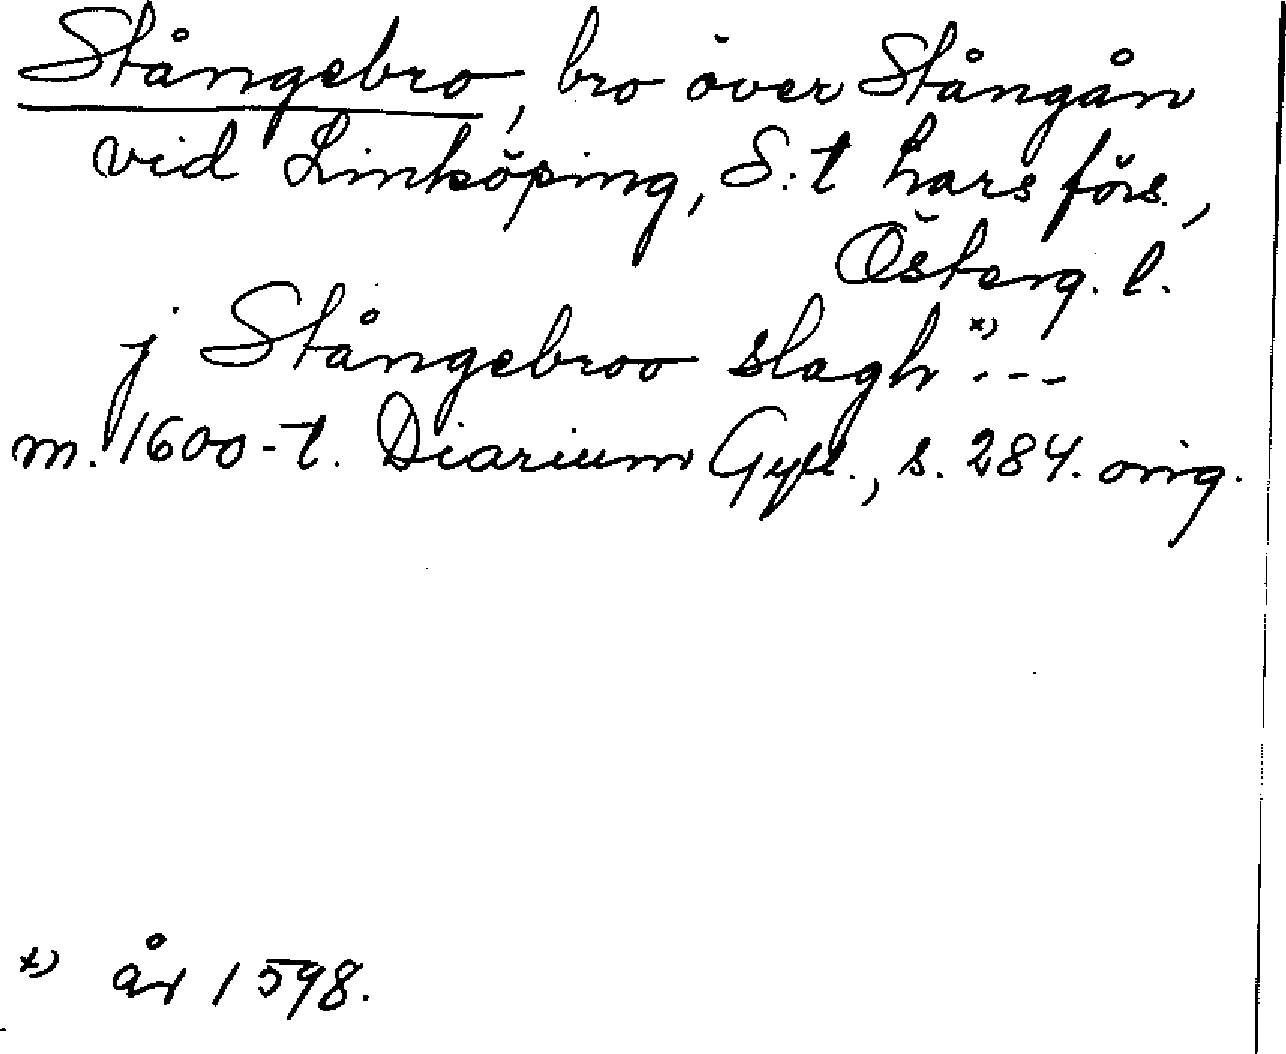 Stångebro, bro över Stångån
vid Linköping, S:t Lars förs.,
Österg. l.
j Stångebroo slagh x) ---
m. 1600-t. Diarium Gyll., s. 284. orig.
x) år 1598.